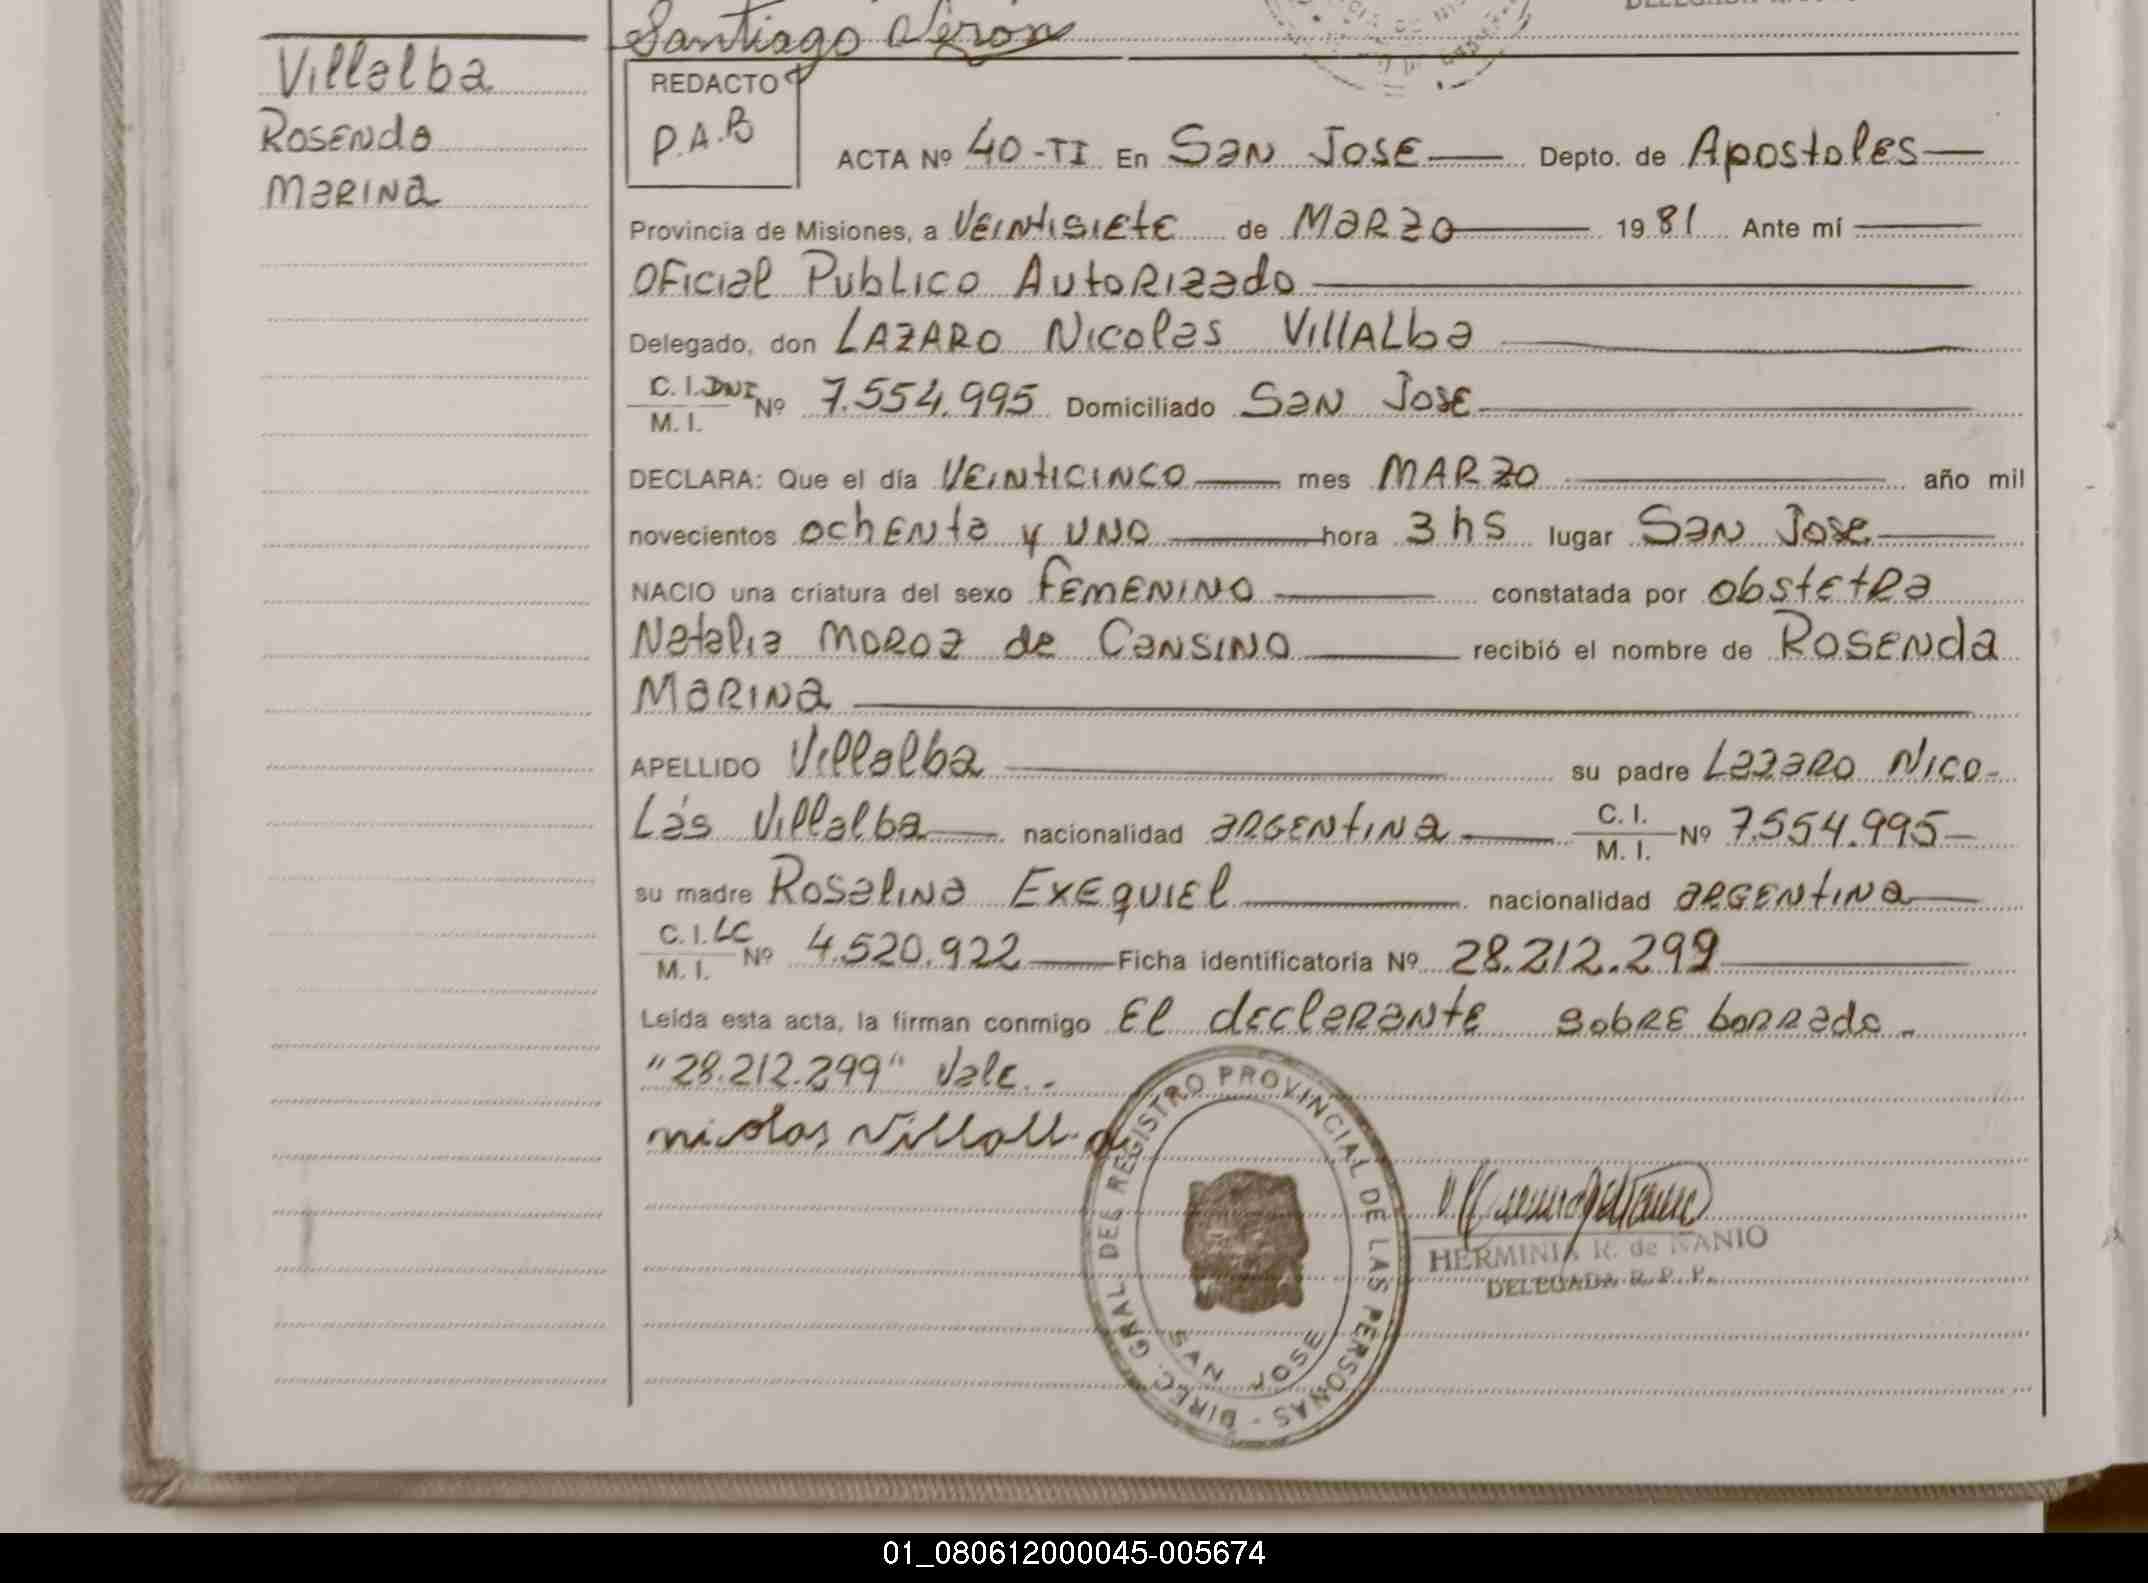 Santiago Seron
Villalba
Rosenda
Marina
REDACTO
P.A.B
ACTA Nº 40-TI En San Jose Depto. de Apostoles
Provincia de Misiones, a Veintisiete de Marzo 1981 Ante mí
Oficial Publico Autorizado
Delegado, don Lazaro Nicolas Villalba
C. I. DNI
M. I. Nº 7.554.995 Domiciliado San Jose
DECLARA: Que el día Veinticinco mes Marzo año mil
novecientos ochenta y uno hora 3 hs lugar San Jose
NACIO una criatura del sexo Femenino constatada por obstetra
Natalia Moroz de Cansino recibió el nombre de Rosenda
Marina
APELLIDO Villalba su padre Lazaro Nico-
Lás Villalba nacionalidad argentina C. I. M. I. Nº 7.554.995
su madre Rosalina Exequiel nacionalidad argentina
C. I. LC
M. I. Nº 4.520.922 Ficha identificatoria Nº 28.212.299
Leída esta acta, la firman conmigo El declarante sobre borrado.
"28.212.299" Vale.-
nicolas Villalba
DIREC. GRAL. DEL REGISTRO PROVINCIAL DE LAS PERSONAS -
SAN JOSE
HERMINIA R. de IVANIO
DELEGADA R. P. P.
01_080612000045-005674